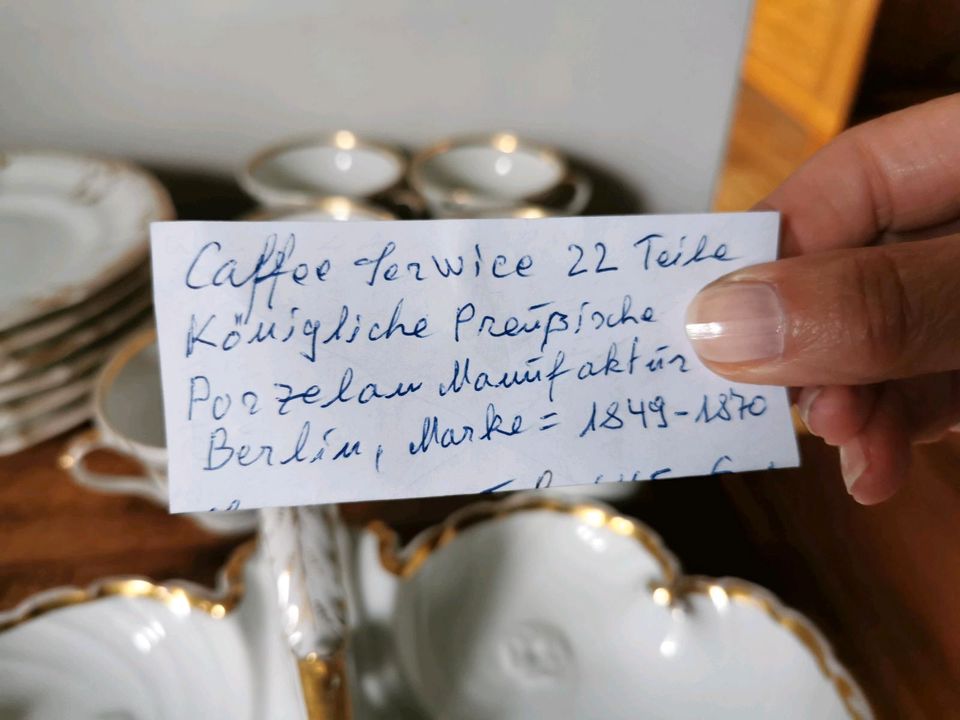 Caffee Serwice 22 Teile
Königliche Preußische
Porzelan Manufaktur
Berlin, Marke = 1849-1870